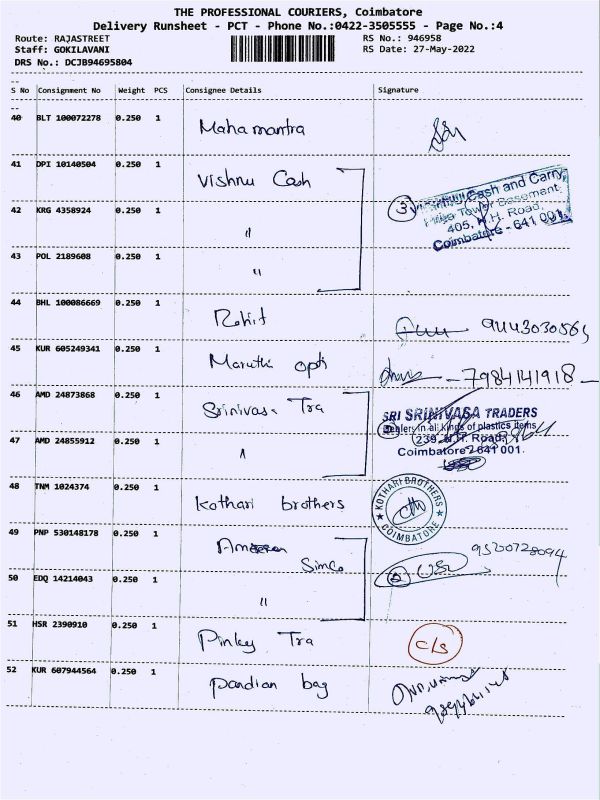 THE PROFESSIONAL COURIERS, Coimbatore
Delivery Runsheet - PCT - Phone No.:0422-3505555 - Page No.:4
Route: RAJASTREET RS No.: 946958
Staff: GOKILAVANI RS Date: 27-May-2022
DRS No.: DCJB94695804
S No Consignment No Weight PCS Consignee Details Signature
40 BLT 100072278 0.250 1 Maha mantra
41 DPI 10140504 0.250 1 Vishnu Cash
3 Cash and Carry
Tower Basement
42 KRG 4358924 0.250 1 "
405, N.H. Road,
Coimbatore - 641 001.
43 POL 2189608 0.250 1 "
44 BHL 100086669 0.250 1 Rohit
45 KUR 605249341 0.250 1 Maruthi opti 7984141918
46 AMD 24873868 0.250 1 Srinivasa Tra
SRI SRINIVASA TRADERS
Dealers in all kinds of plastics items
47 AMD 24855912 0.250 1 "
239, N.H. Road,
Coimbatore - 641 001.
48 TNM 1024374 0.250 1 Kothari brothers
KOTHARI BROTHERS
COIMBATORE
49 PNP 530148178 0.250 1 Simco
50 EDQ 14214043 0.250 1 " 2
51 HSR 2390910 0.250 1 Pinky Tra c/s
52 KUR 607944564 0.250 1 Pandian bag